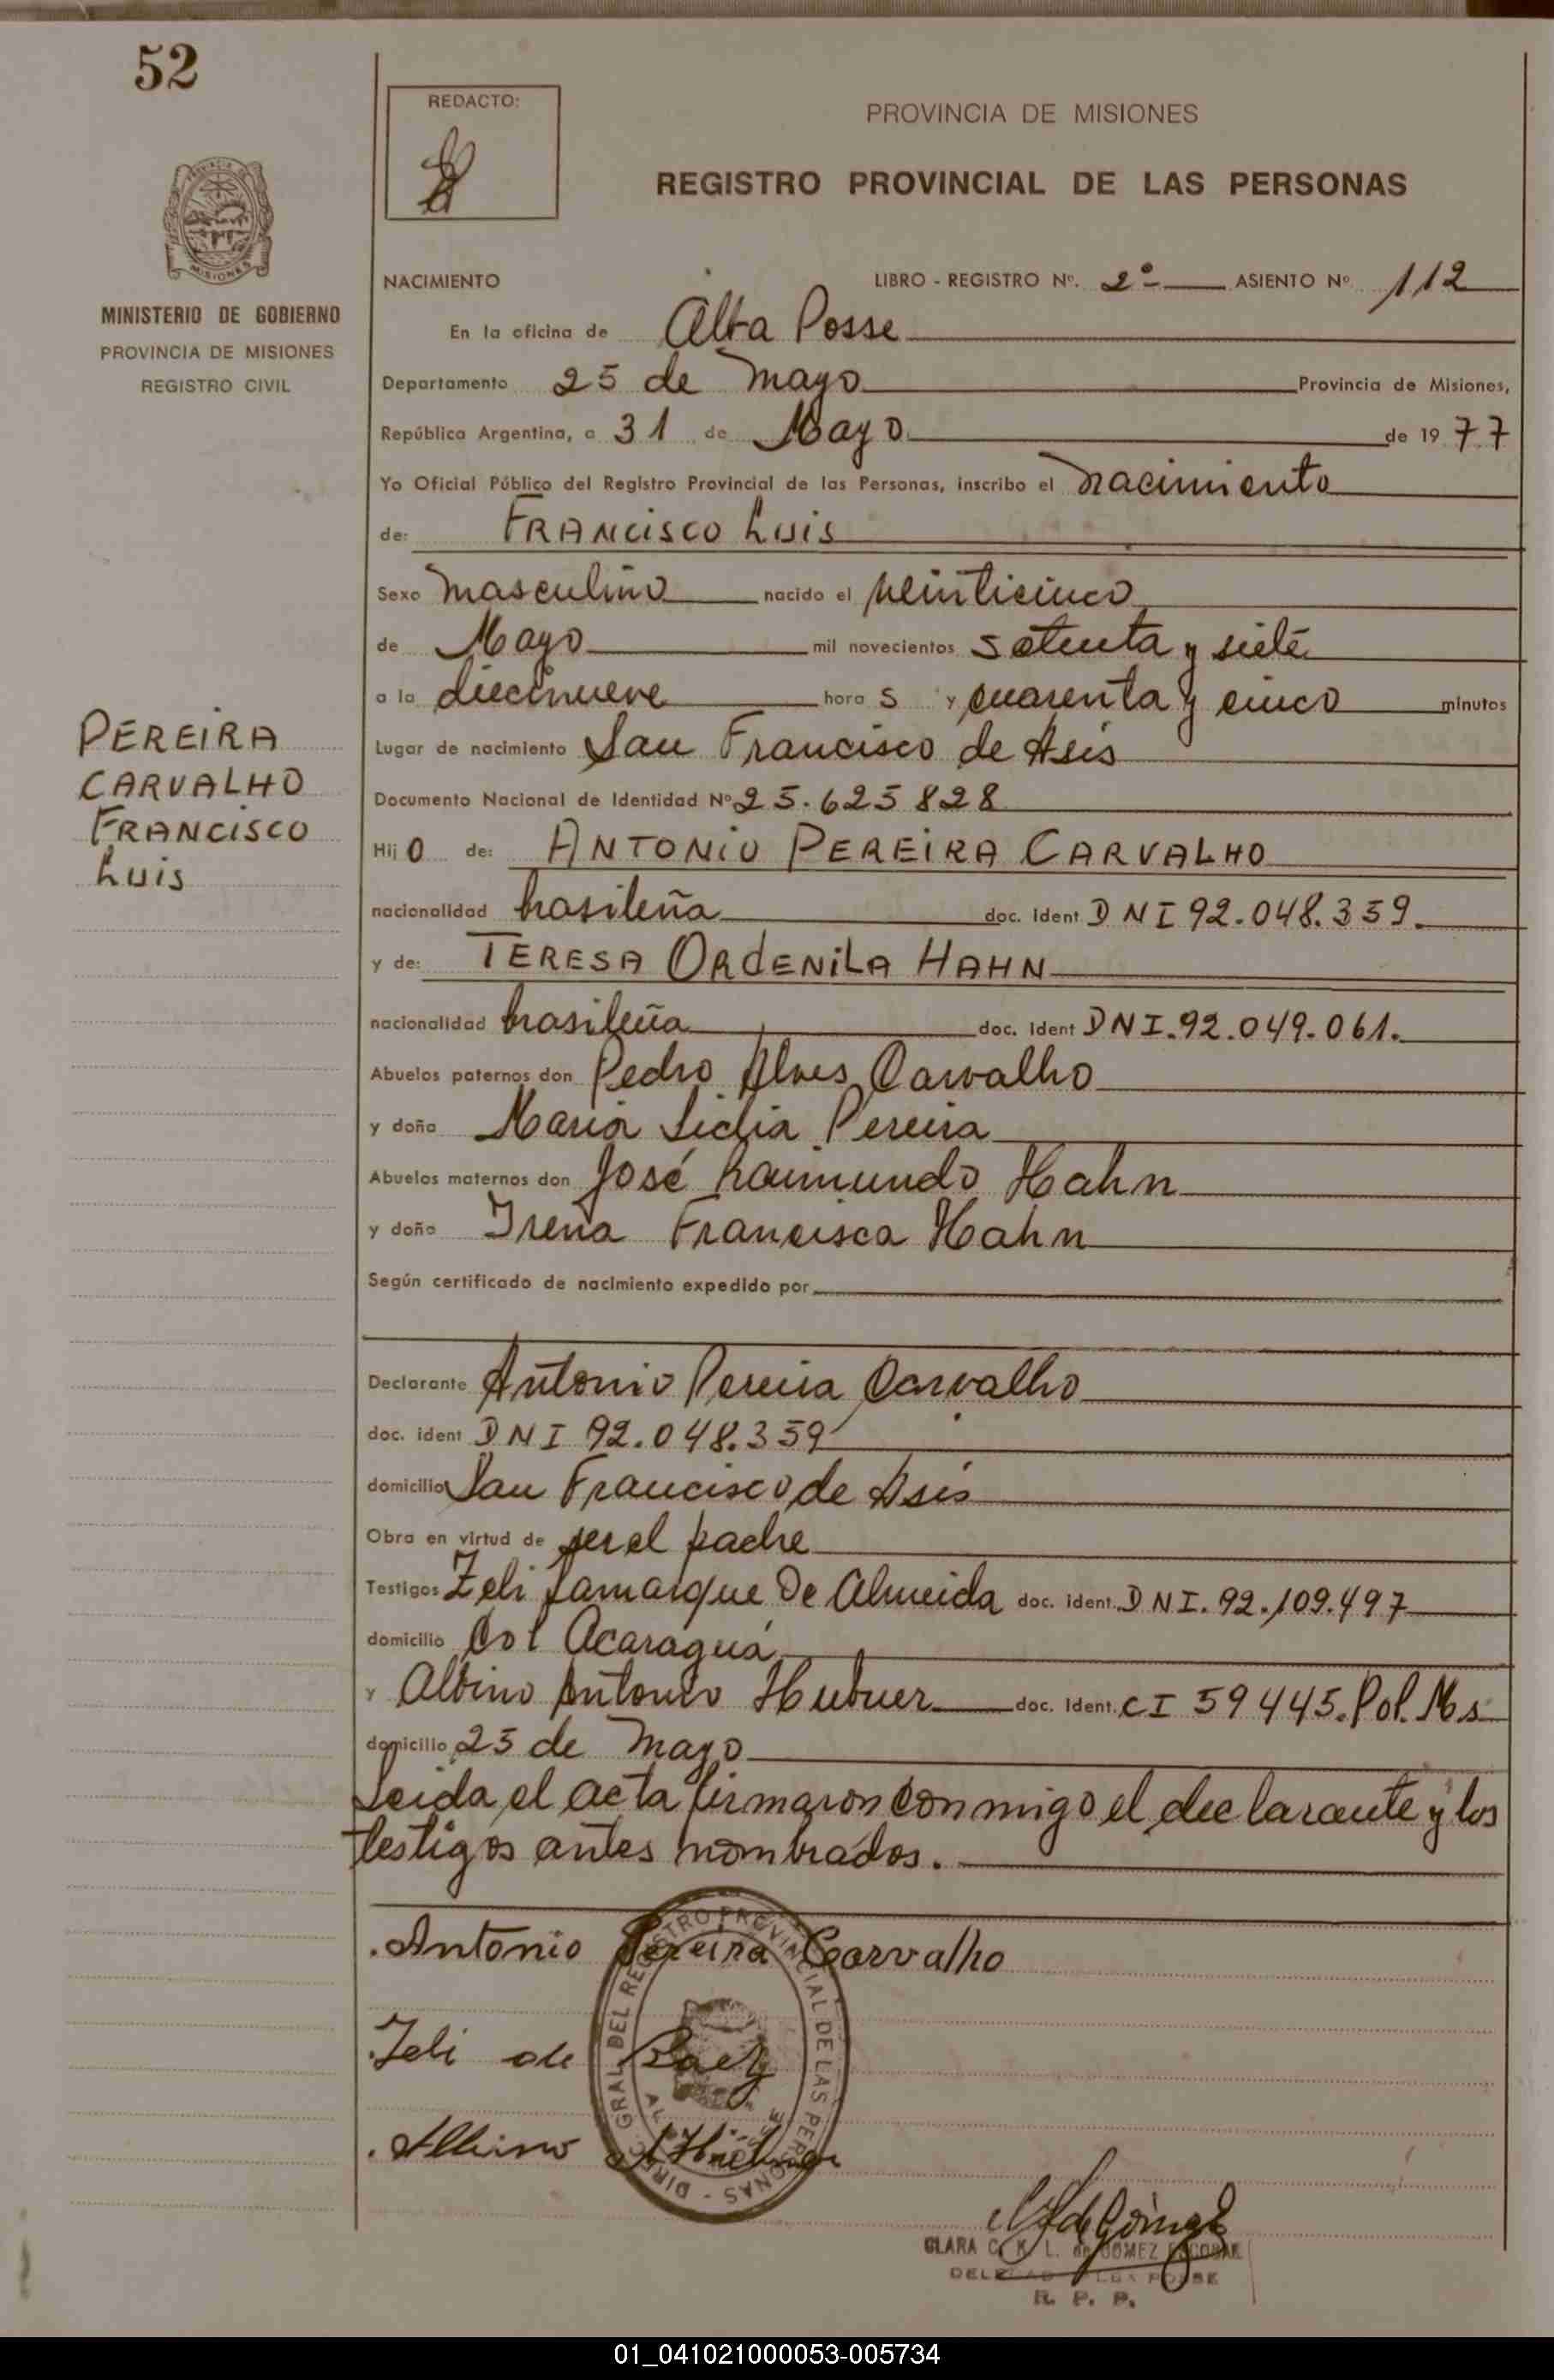 52
REDACTO:
PROVINCIA DE MISIONES
REGISTRO PROVINCIAL DE LAS PERSONAS
MISIONES
MINISTERIO DE GOBIERNO
PROVINCIA DE MISIONES
REGISTRO CIVIL
NACIMIENTO LIBRO - REGISTRO Nº. 2º ASIENTO Nº 112
En la oficina de Alba Posse
Departamento 25 de Mayo Provincia de Misiones,
República Argentina, a 31 de Mayo de 1977
Yo Oficial Público del Registro Provincial de las Personas, inscribo el nacimiento
de: FRANCISCO LUIS
Sexo masculino nacido el veinticinco
de Mayo mil novecientos setenta y siete
a la diecinueve hora s y cuarenta y cinco minutos
Lugar de nacimiento San Francisco de Asis
Documento Nacional de Identidad Nº 25.625828
PEREIRA
CARVALHO
FRANCISCO
LUIS
Hijo de: ANTONIO PEREIRA CARVALHO
nacionalidad brasileña doc. Ident DNI 92.048.359.
y de: TERESA ORDENILA HAHN
nacionalidad brasileña doc. Ident DNI.92.049.061.
Abuelos paternos don Pedro Alves Carvalho
y doña Maria Lidia Pereira
Abuelos maternos don José Raimundo Hahn
y doña Irena Francisca Hahn
Según certificado de nacimiento expedido por
Declarante Antonio Pereira Carvalho
doc. ident DNI 92.048.359
domicilio San Francisco de Asis
Obra en virtud de ser el padre
Testigos Zeli Lamarque De Almeida doc. ident. DNI. 92.109.497
domicilio Col Acaraguá
y Albino Antonio Hubner doc. Ident. CI 59445.Pol.Ms
domicilio 25 de Mayo
Leida el acta firmaron conmigo el declarante y los
testigos antes nombrados.
Antonio Pereira Carvalho
Zeli de Baez
Albino A Hübner
DIREC. GRAL. DEL REGISTRO PROVINCIAL DE LAS PERSONAS
CLARA C. K. L. de GOMEZ ESCOBAR
DELEGADA ALBA POSSE
R. P. P.
01_041021000053-005734